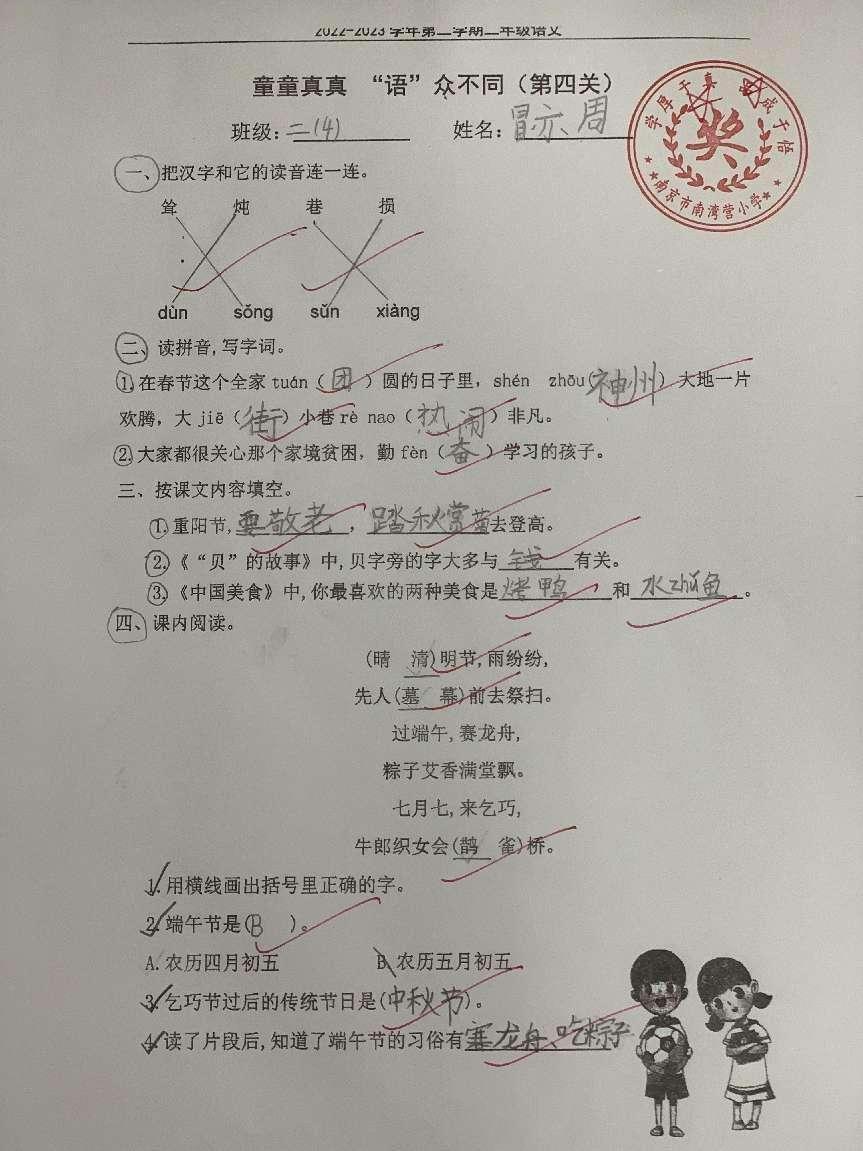 2022-2023学年第二学期二年级语文
童童真真 “语”众不同（第四关）
班级：二(4) 姓名：冒亦周
学厚于真 品成于悟
奖
南京市南湾营小学
一、把汉字和它的读音连一连。
耸 炖 巷 损
dùn sǒng sǔn xiàng
二、读拼音,写字词。
1.在春节这个全家 tuán（团）圆的日子里，shén zhōu(神州）大地一片
欢腾，大 jiē（街）小巷 rè nao（热闹）非凡。
2.大家都很关心那个家境贫困，勤 fèn（奋）学习的孩子。
三、按课文内容填空。
①.重阳节,要敬老，踏秋赏菊去登高。
②.《“贝”的故事》中,贝字旁的字大多与钱有关。
③.《中国美食》中,你最喜欢的两种美食是烤鸭和水zhǔ鱼。
四、课内阅读。
(晴 清)明节,雨纷纷,
先人(墓 幕)前去祭扫。
过端午,赛龙舟,
粽子艾香满堂飘。
七月七,来乞巧,
牛郎织女会(鹊 雀)桥。
1.用横线画出括号里正确的字。
2.端午节是(B )。
A.农历四月初五 B.农历五月初五
3.乞巧节过后的传统节日是(中秋节)。
4.读了片段后,知道了端午节的习俗有赛龙舟、吃粽子